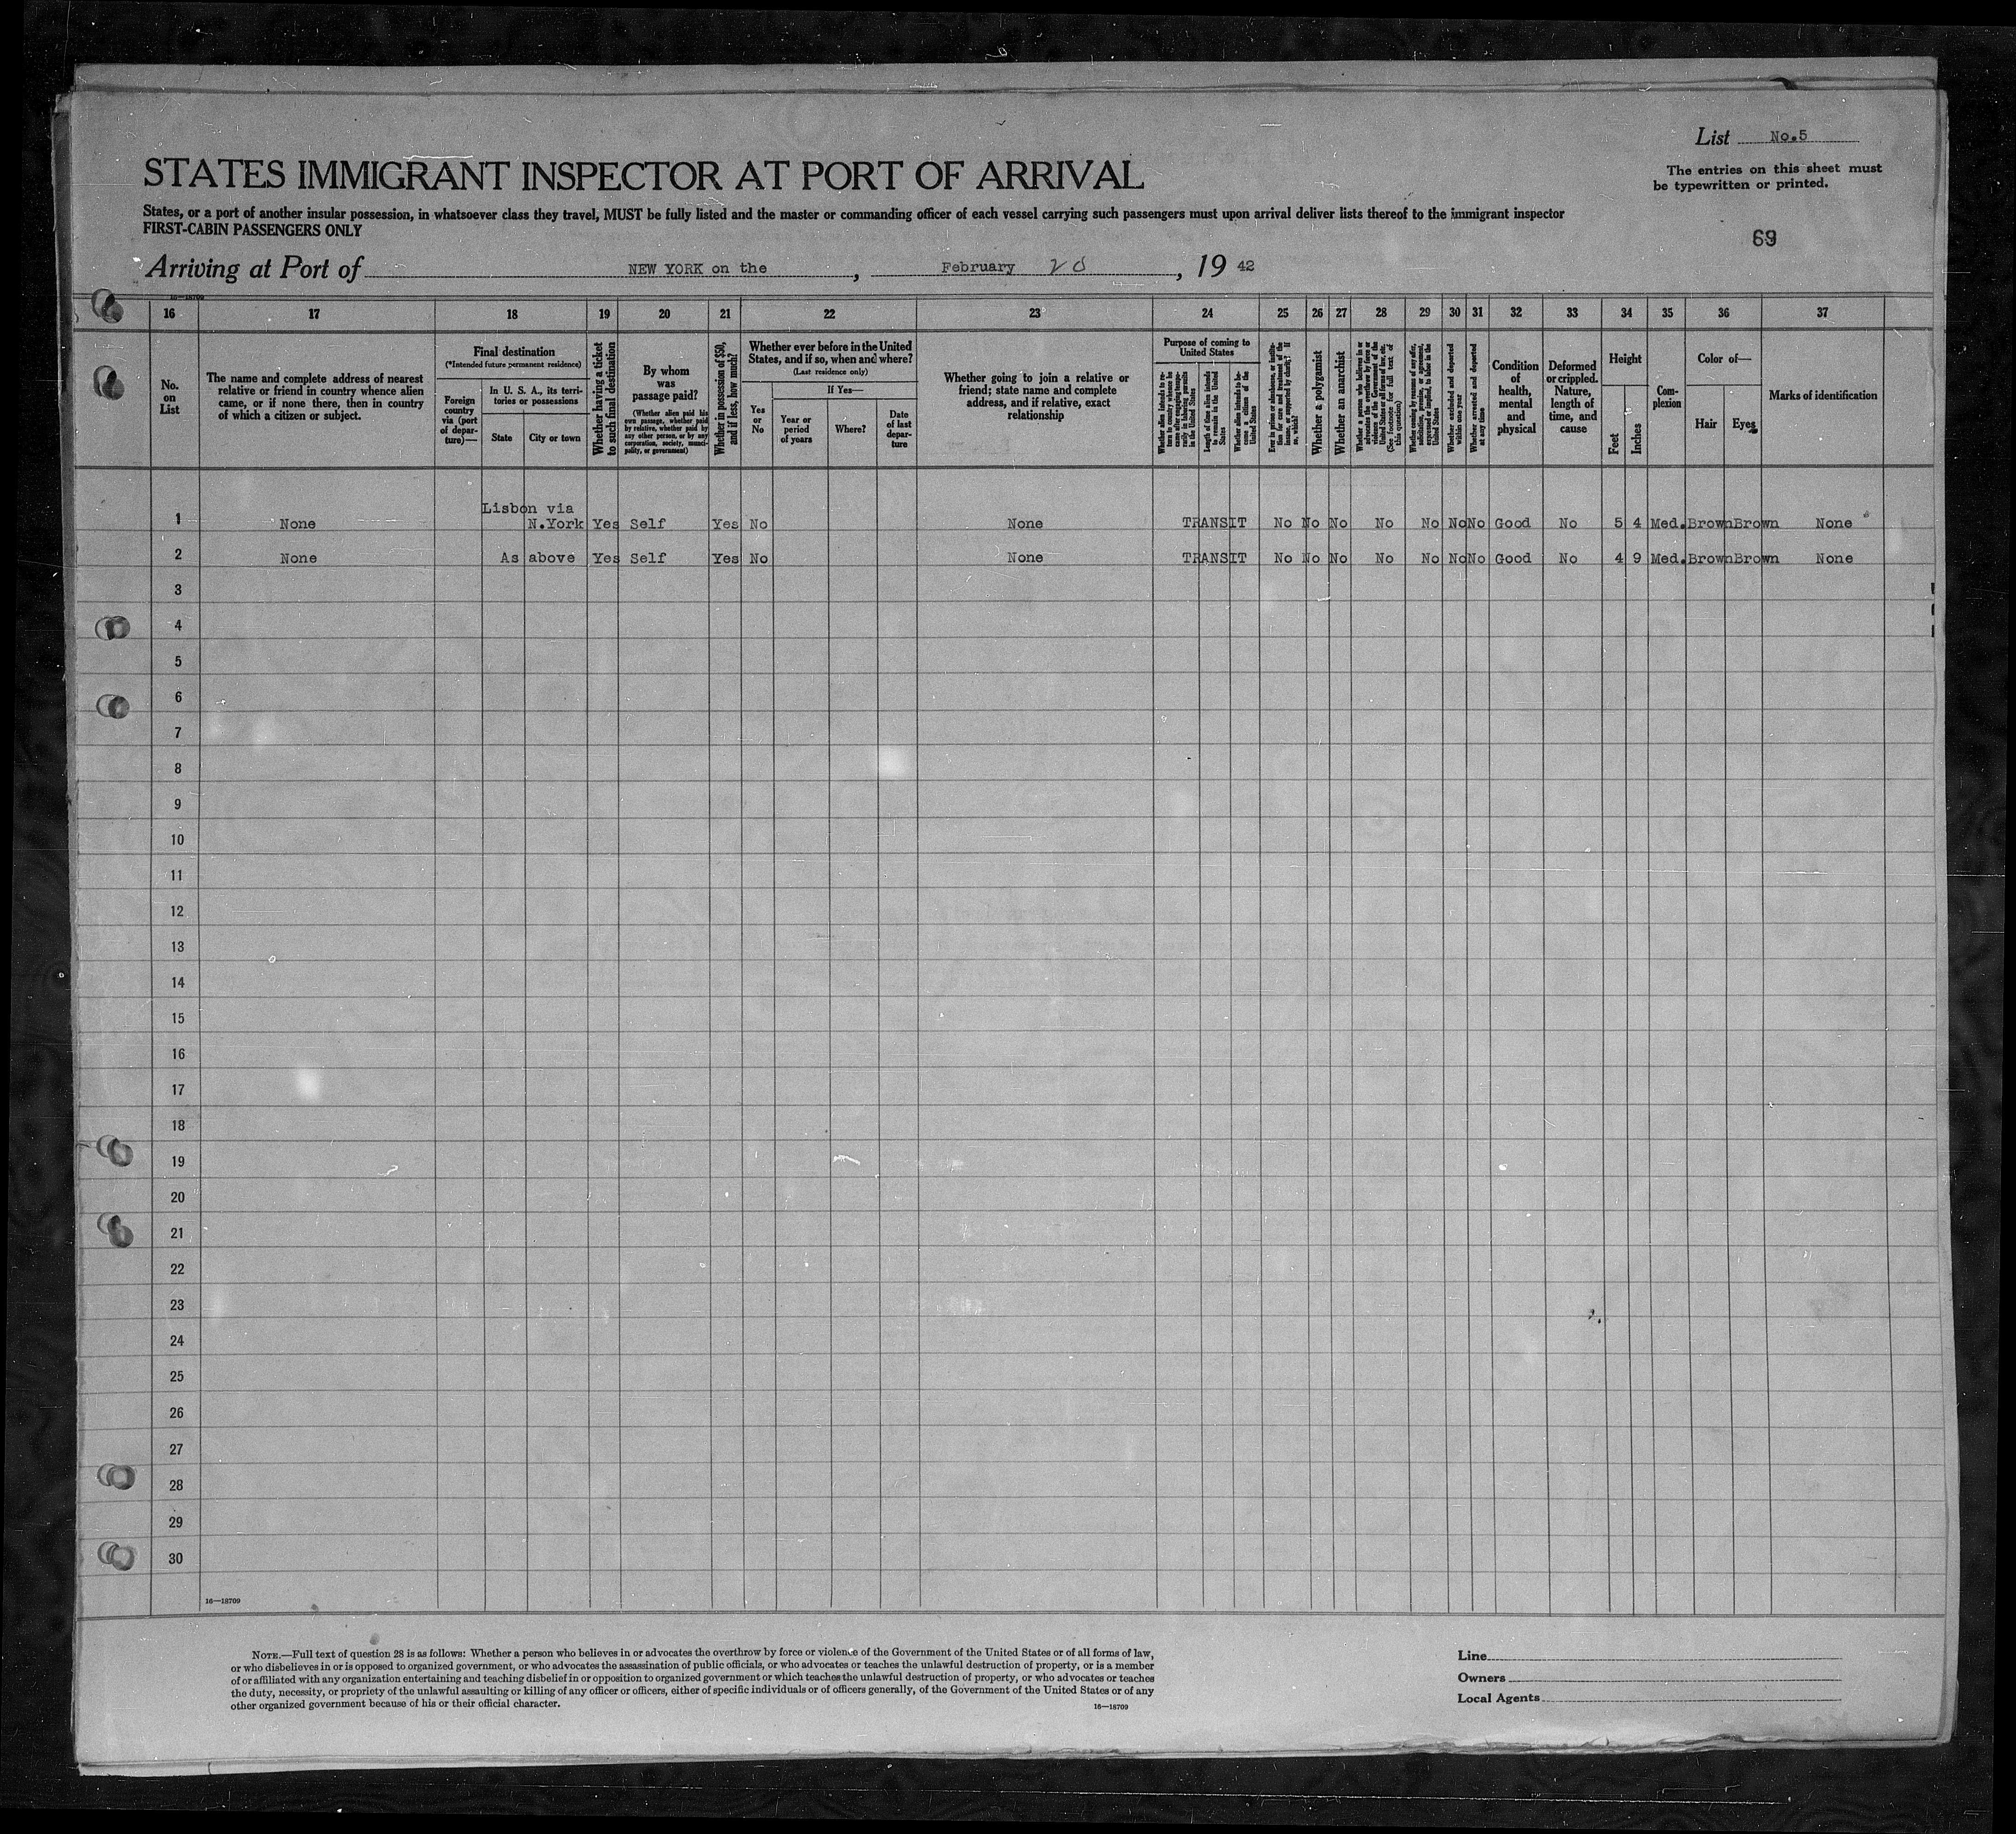 List No.5
STATES IMMIGRANT INSPECTOR AT PORT OF ARRIVAL
The entries on this sheet must
be typewritten or printed.
States, or a port of another insular possession, in whatsoever class they travel, MUST be fully listed and the master or commanding officer of each vessel carrying such passengers must upon arrival deliver lists thereof to the immigrant inspector
FIRST-CABIN PASSENGERS ONLY
69
Arriving at Port of NEW YORK on the , February 20 , 19 42
16—18709
16 17 18 19 20 21 22 23 24 25 26 27 28 29 30 31 32 33 34 35 36 37
No.
on
List
The name and complete address of nearest
relative or friend in country whence alien
came, or if none there, then in country
of which a citizen or subject.
Final destination
(*Intended future permanent residence)
Foreign
country
via (port
of depar-
ture)—
In U. S. A., its terri-
tories or possessions
State
City or town
Whether having a ticket
to such final destination
By whom
was
passage paid?
(Whether alien paid his
own passage, whether paid
by relative, whether paid by
any other person, or by any
corporation, society, munici-
pality, or government)
Whether in possession of $50,
and if less, how much?
Whether ever before in the United
States, and if so, when and where?
(Last residence only)
Yes
or
No
If Yes—
Year or
period
of years
Where?
Date
of last
depar-
ture
Whether going to join a relative or
friend; state name and complete
address, and if relative, exact
relationship
Purpose of coming to
United States
Whether alien intends to re-
turn to country whence he
came after engaging tempo-
rarily in laboring pursuits
in the United States
Length of time alien intends
to remain in the United
States
Whether alien intends to be-
come a citizen of the
United States
Ever in prison or almshouse, or institu-
tion for care and treatment of the
insane, or supported by charity? If
so, which?
Whether a polygamist
Whether an anarchist
Whether a person who believes in or
advocates the overthrow by force or
violence of the Government of the
United States or all forms of law, etc.
(See footnote for full text of
this question)
Whether coming by reasons of any offer,
solicitation, promise, or agreement,
expressed or implied, to labor in the
United States
Whether excluded and deported
within one year
Whether arrested and deported
at any time
Condition
of
health,
mental
and
physical
Deformed
or crippled.
Nature,
length of
time, and
cause
Height
Feet
Inches
Com-
plexion
Color of—
Hair
Eyes
Marks of identification
Lisbon via
1 None N.York Yes Self Yes No None TRANSIT No No No No No No No Good No 5 4 Med. Brown Brown None
2 None As above Yes Self Yes No None TRANSIT No No No No No No No Good No 4 9 Med. Brown Brown None
3
4
5
6
7
8
9
10
11
12
13
14
15
16
17
18
19
20
21
22
23
24
25
26
27
28
29
30
16—18709
NOTE.—Full text of question 28 is as follows: Whether a person who believes in or advocates the overthrow by force or violence of the Government of the United States or of all forms of law,
or who disbelieves in or is opposed to organized government, or who advocates the assassination of public officials, or who advocates or teaches the unlawful destruction of property, or is a member
of or affiliated with any organization entertaining and teaching disbelief in or opposition to organized government or which teaches the unlawful destruction of property, or who advocates or teaches
the duty, necessity, or propriety of the unlawful assaulting or killing of any officer or officers, either of specific individuals or of officers generally, of the Government of the United States or of any
other organized government because of his or their official character.
16—18709
Line
Owners
Local Agents